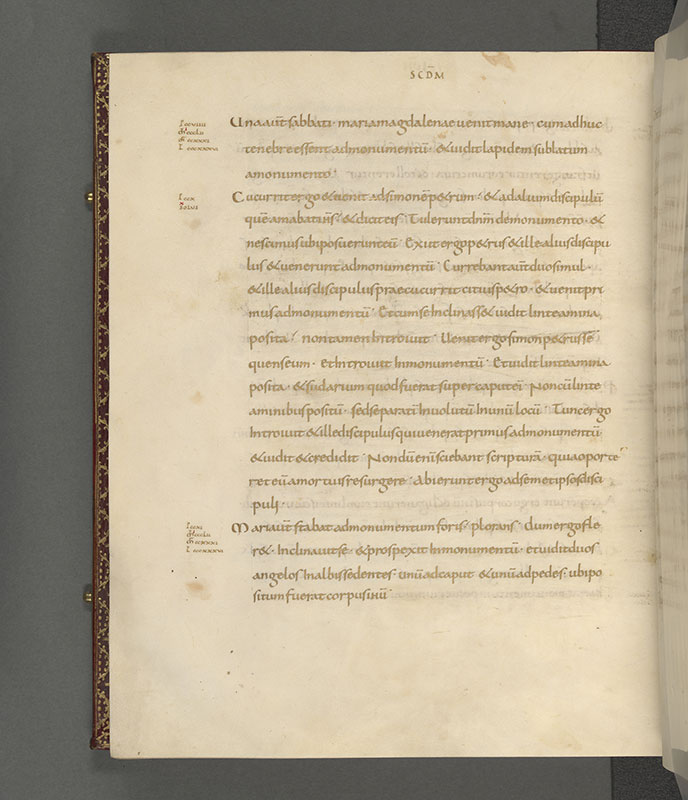 SCDM
Una aut̄ sabbati · maria magdalenae venit mane · cum adhuc
tenebre essent ad monumentū · & vidit lapidem sublatum
a monumento ·
Cucurrit ergo & venit ad simonē p&rum · & ad alium discipulū
quē amabat ihs̄ · & dicit eis · Tulerunt dnm̄ de monumento · &
nescimus ubi posuerunt eū · Exiit ergo p&rus & ille alius discipu
lus & venerunt ad monumentū · Currebant aut̄ duo simul ·
& ille alius discipulus praecucurrit citius p&ro · & venit pri
mus ad monumentū · Et cum se Inclinass& vidit linteamina
posita · non tamen Introivit · Venit ergo simon p&rus se
quens eum · et Introivit In monumentū · Et vidit linteamina
posita · & sudarium quod fuerat super caput eiꝰ · Non cū linte
aminibus positū · sed separatī Involutū In unū locū · Tunc ergo
Introivit & ille discipulus qui venerat primus ad monumentū
& vidit & credidit · Nondū enī sciebant scripturā · quia oporte
ret eū a mortuis resurgere · Abierunt ergo ad semetipsos disci
puli ·
Maria aut̄ stabat ad monumentum foris · plorans · dum ergo fle
r& · Inclinavit se · & prospexit In monumentū · et vidit duos
angelos In albis sedentes · unū ad caput & unū ad pedes · ubi po
situm fuerat corpus ihū